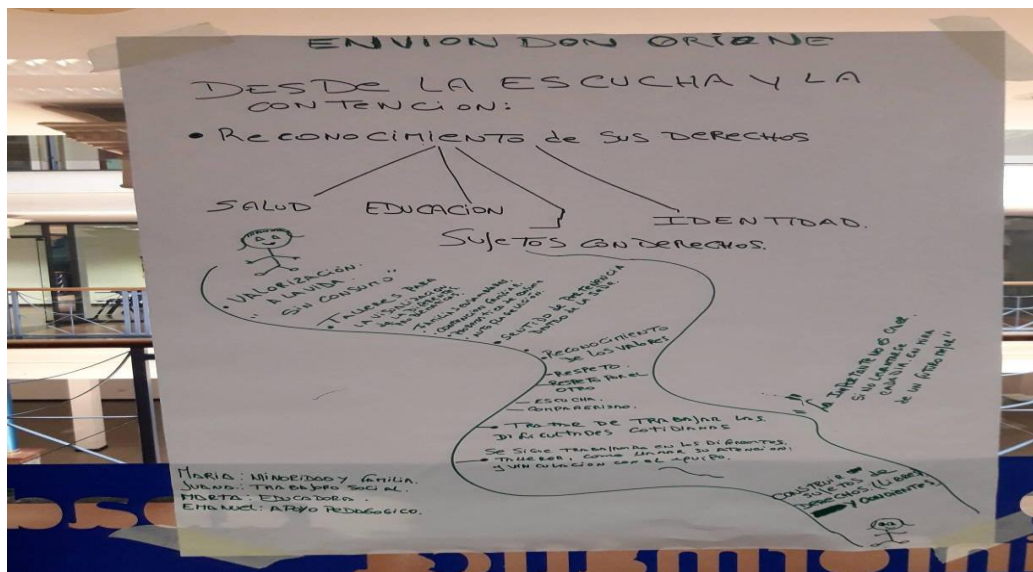 ENVION DON ORIONE
DESDE LA ESCUCHA Y LA
CONTENCION:
• RECONOCIMIENTO de SUS DERECHOS
SALUD
EDUCACION
IDENTIDAD.
SUJETOS CON DERECHOS.
• VALORIZACIÓN.
A LA VIDA.
"SIN CONSUMO"
• TALLERES PARA
LA VISUALIZACION
DE LA
FAMILIAR.
• SENTIDO DE PERTENENCIA
DENTRO DE LA SEDE.
• RECONOCIMIENTO
DE LOS VALORES
- RESPETO.
- RESPETO POR EL
OTRO
- ESCUCHA.
- COMPAÑERISMO.
• TRATAR DE TRABAJAR LAS
DIFICULTADES COTIDIANAS
SE SIGUE TRABAJANDO EN LOS DIFERENTES
• TALLERES, COMO LLAMAR SU ATENCION
Y VINCULACION CON EL EQUIPO.
"LO IMPORTANTE NO ES CAER
SI NO LEVANTARSE
CADA DIA EN MIRA
DE UN FUTURO MEJOR"
CONSTRUIR
SUJETOS de
DERECHOS (LIBRES
Y CONCIENTES)
MARIA: MINORIDAD Y FAMILIA.
JUANA: TRABAJO SOCIAL.
MARTA: EDUCADORA.
EMANUEL: APOYO PEDAGOGICO.